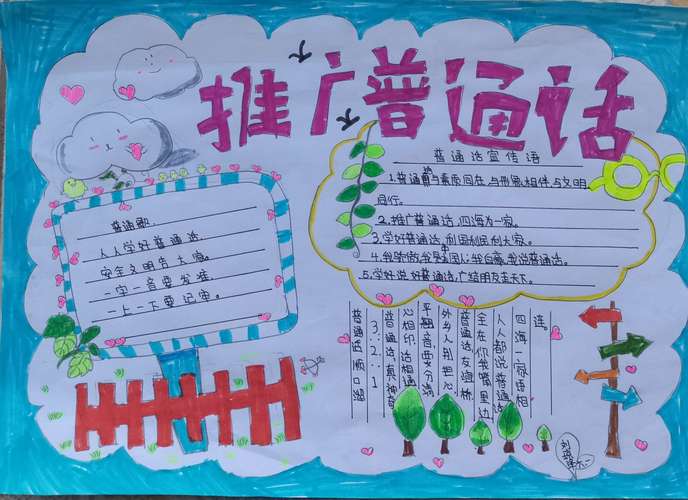 推广普通话
普通话宣传语
1.普通话与素质同在,与形象相伴,与文明
同行。
2.推广普通话,四海为一家。
3.学好普通话,利国利民利大家。
4.我骄傲,我是中国人;我自豪,我说普通话。
5.学好说好普通话,广结朋友走天下。
普通歌
人人学好普通话
安全文明告大家
一字一音要发准
一上一下要记牢。
普通话顺口溜
3:2:1
普通话,真神奇
心相印,话相通
平翘音要分清
外乡人别担心
普通话,友谊桥
全在你我嘴里边
人人都说普通话
四海一家语相
连。